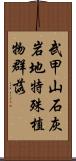 武甲山石灰
岩地特殊植
物群落